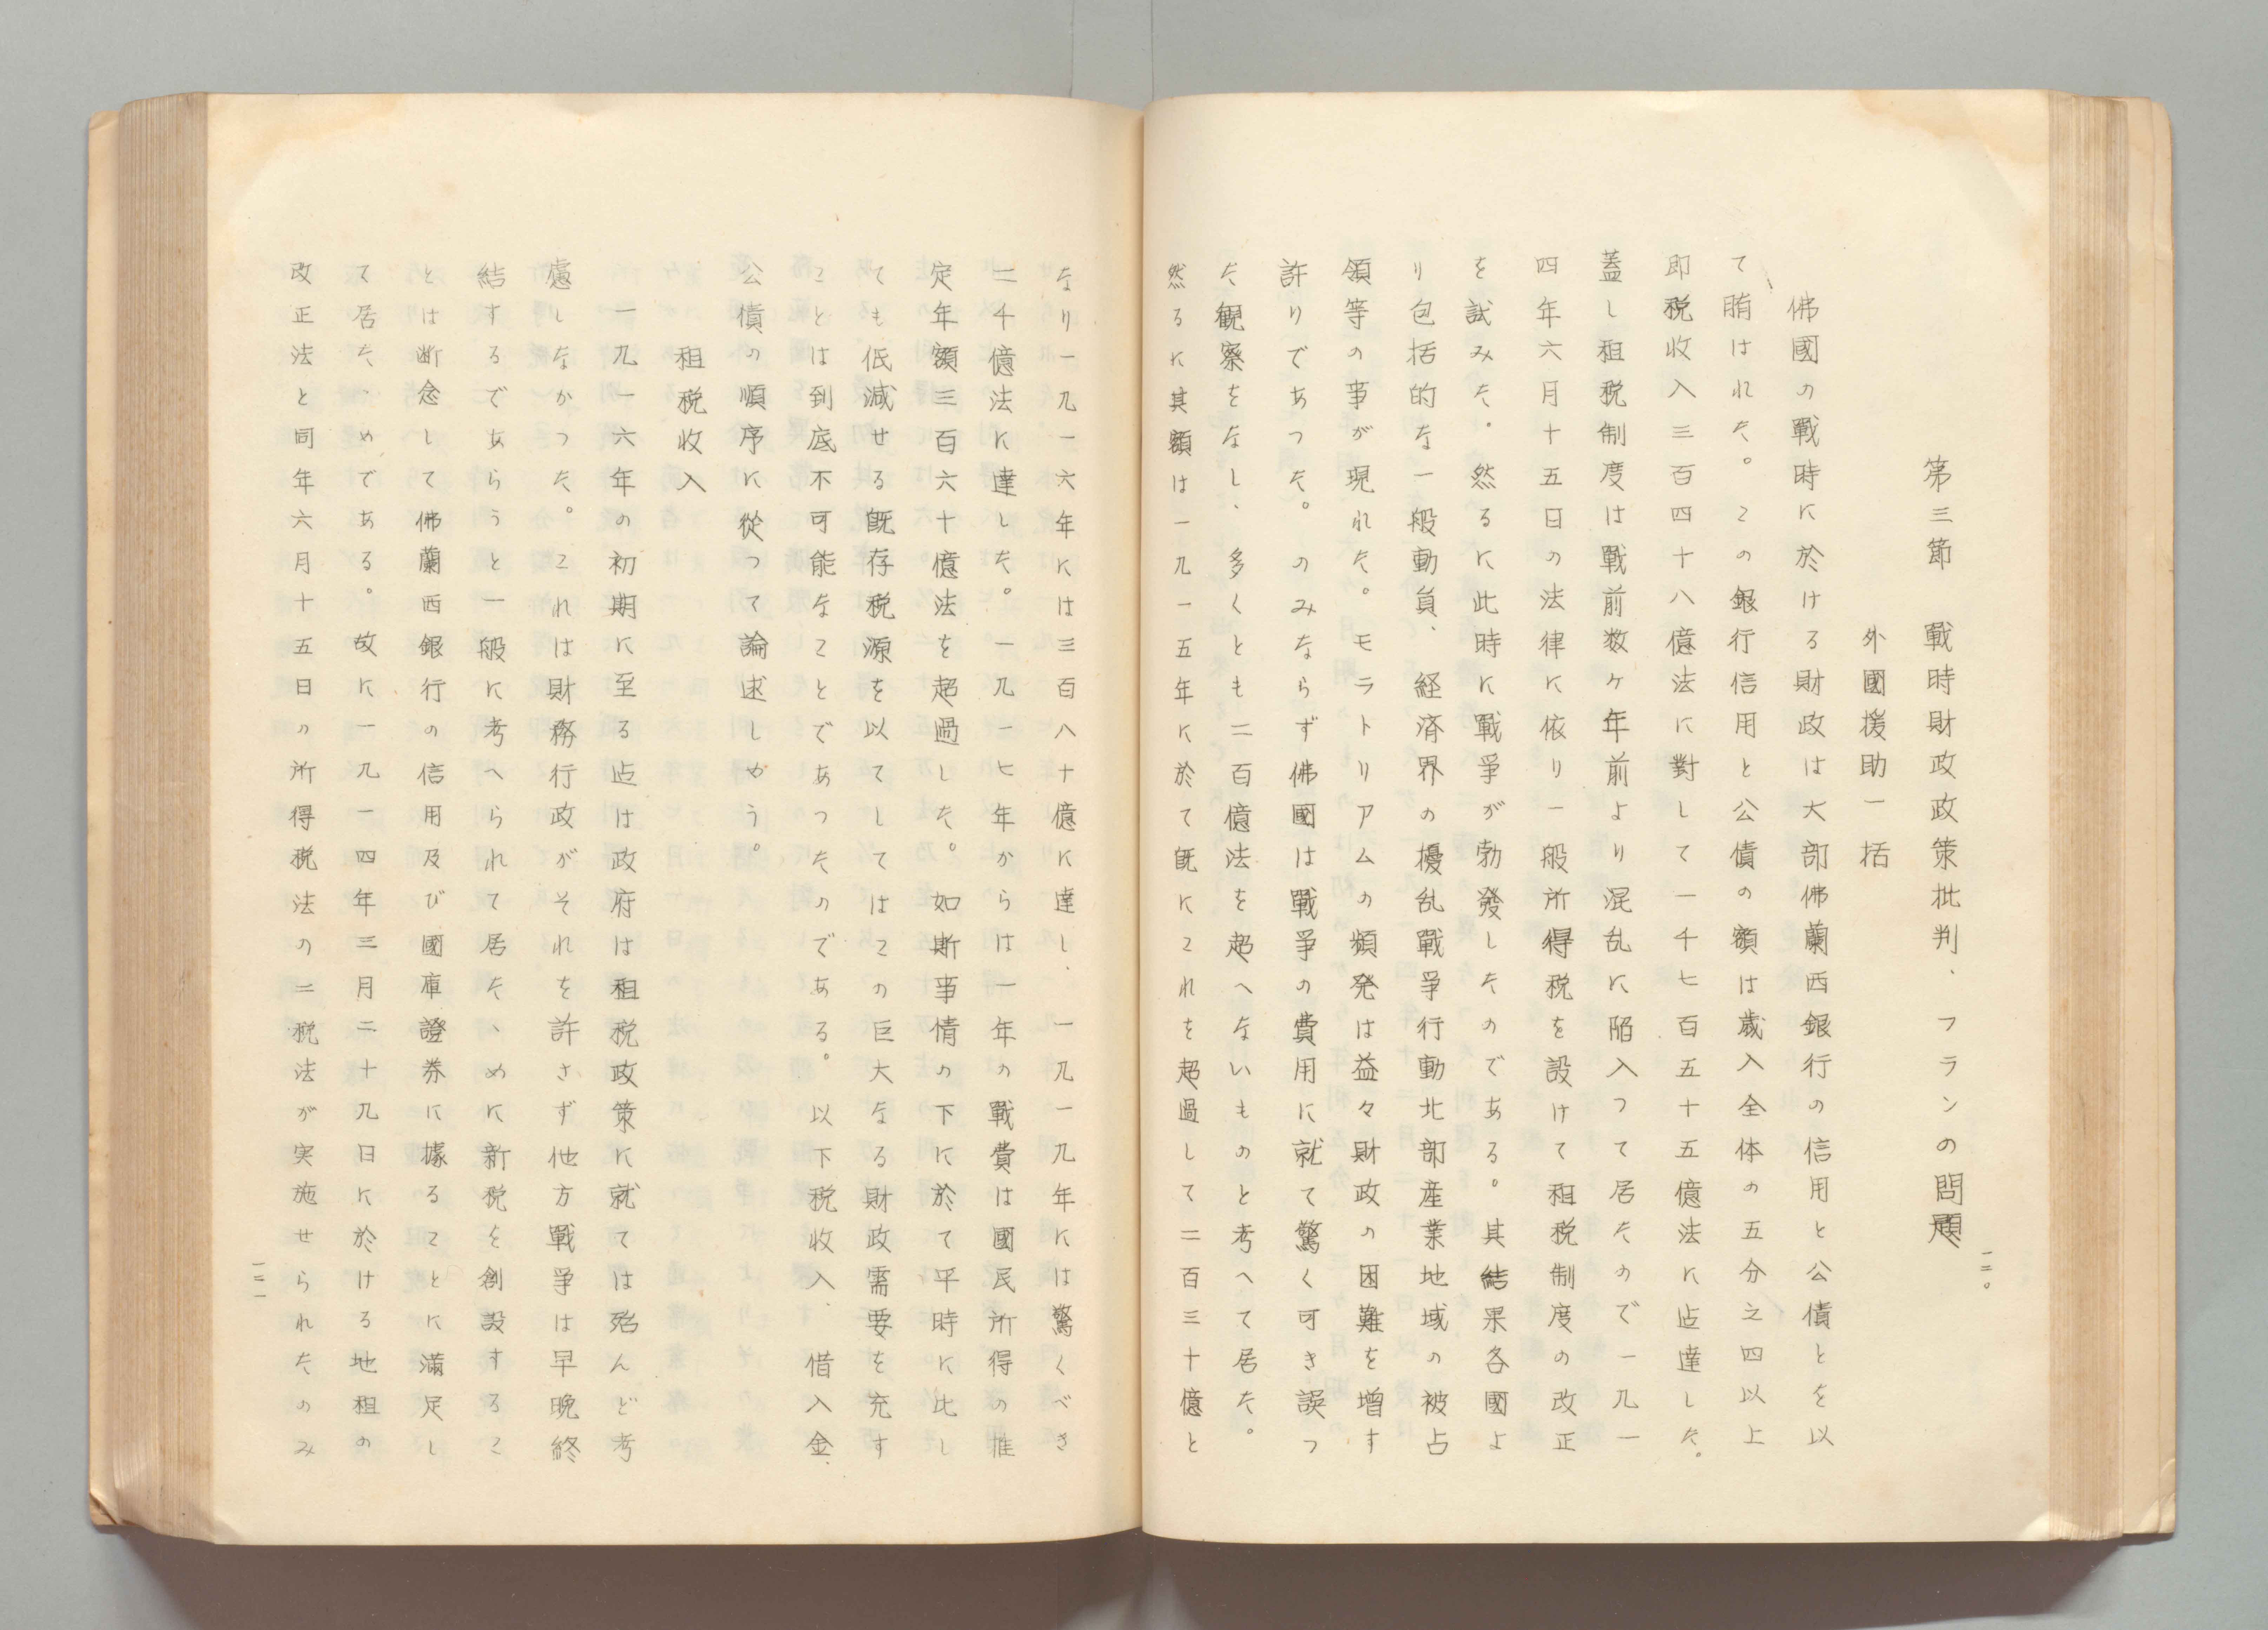 第三節　戰時財政政策批判、フランの問題
外國援助一括
佛國の戰時に於ける財政は大部佛蘭西銀行の信用と公債とを以
て賄はれた。この銀行信用と公債の額は歳入全体の五分之四以上
即税收入三百四十八億法に對して一千七百五十五億法に迠達した。
蓋し租税制度は戰前数ヶ年前より混乱に陥入つて居たので一九一
四年六月十五日の法律に依り一般所得税を設けて租税制度の改正
を試みた。然るに此時に戰爭が勃發したのである。其結果各國よ
り包括的な一般動員、経済界の擾乱戰爭行動北部産業地域の被占
領等の事が現れた。モラトリアムの頻発は益々財政の困難を増す
許りであつた。のみならず佛國は戰爭の費用に就て驚く可き誤つ
た観察をなし、多くとも二百億法を超へないものと考へて居た。
然るに其額は一九一五年に於て既にこれを超過して二百三十億と
一二〇
なり一九一六年には三百八十億に達し、一九一九年には驚くべき
二千億法に達した。一九一七年からは一年の戰費は國民所得の推
定年額三百六十億法を超過した。如斯事情の下に於て平時に比し
ても低減せる既存税源を以てしてはこの巨大なる財政需要を充す
ことは到底不可能なことであつたのである。以下税收入、借入金、
公債の順序に從つて論述しやう。
租税收入
一九一六年の初期に至る迠は政府は租税政策に就ては殆んど考
慮しなかつた。これは財務行政がそれを許さず他方戰爭は早晩終
結するであらうと一般に考へられて居たゝめに新税を創設するこ
とは断念して佛蘭西銀行の信用及び國庫證券に據ることに滿足し
て居たゝめである。故に一九一四年三月二十九日に於ける地租の
改正法と同年六月十五日の所得税法の二税法が実施せられたのみ
一二一